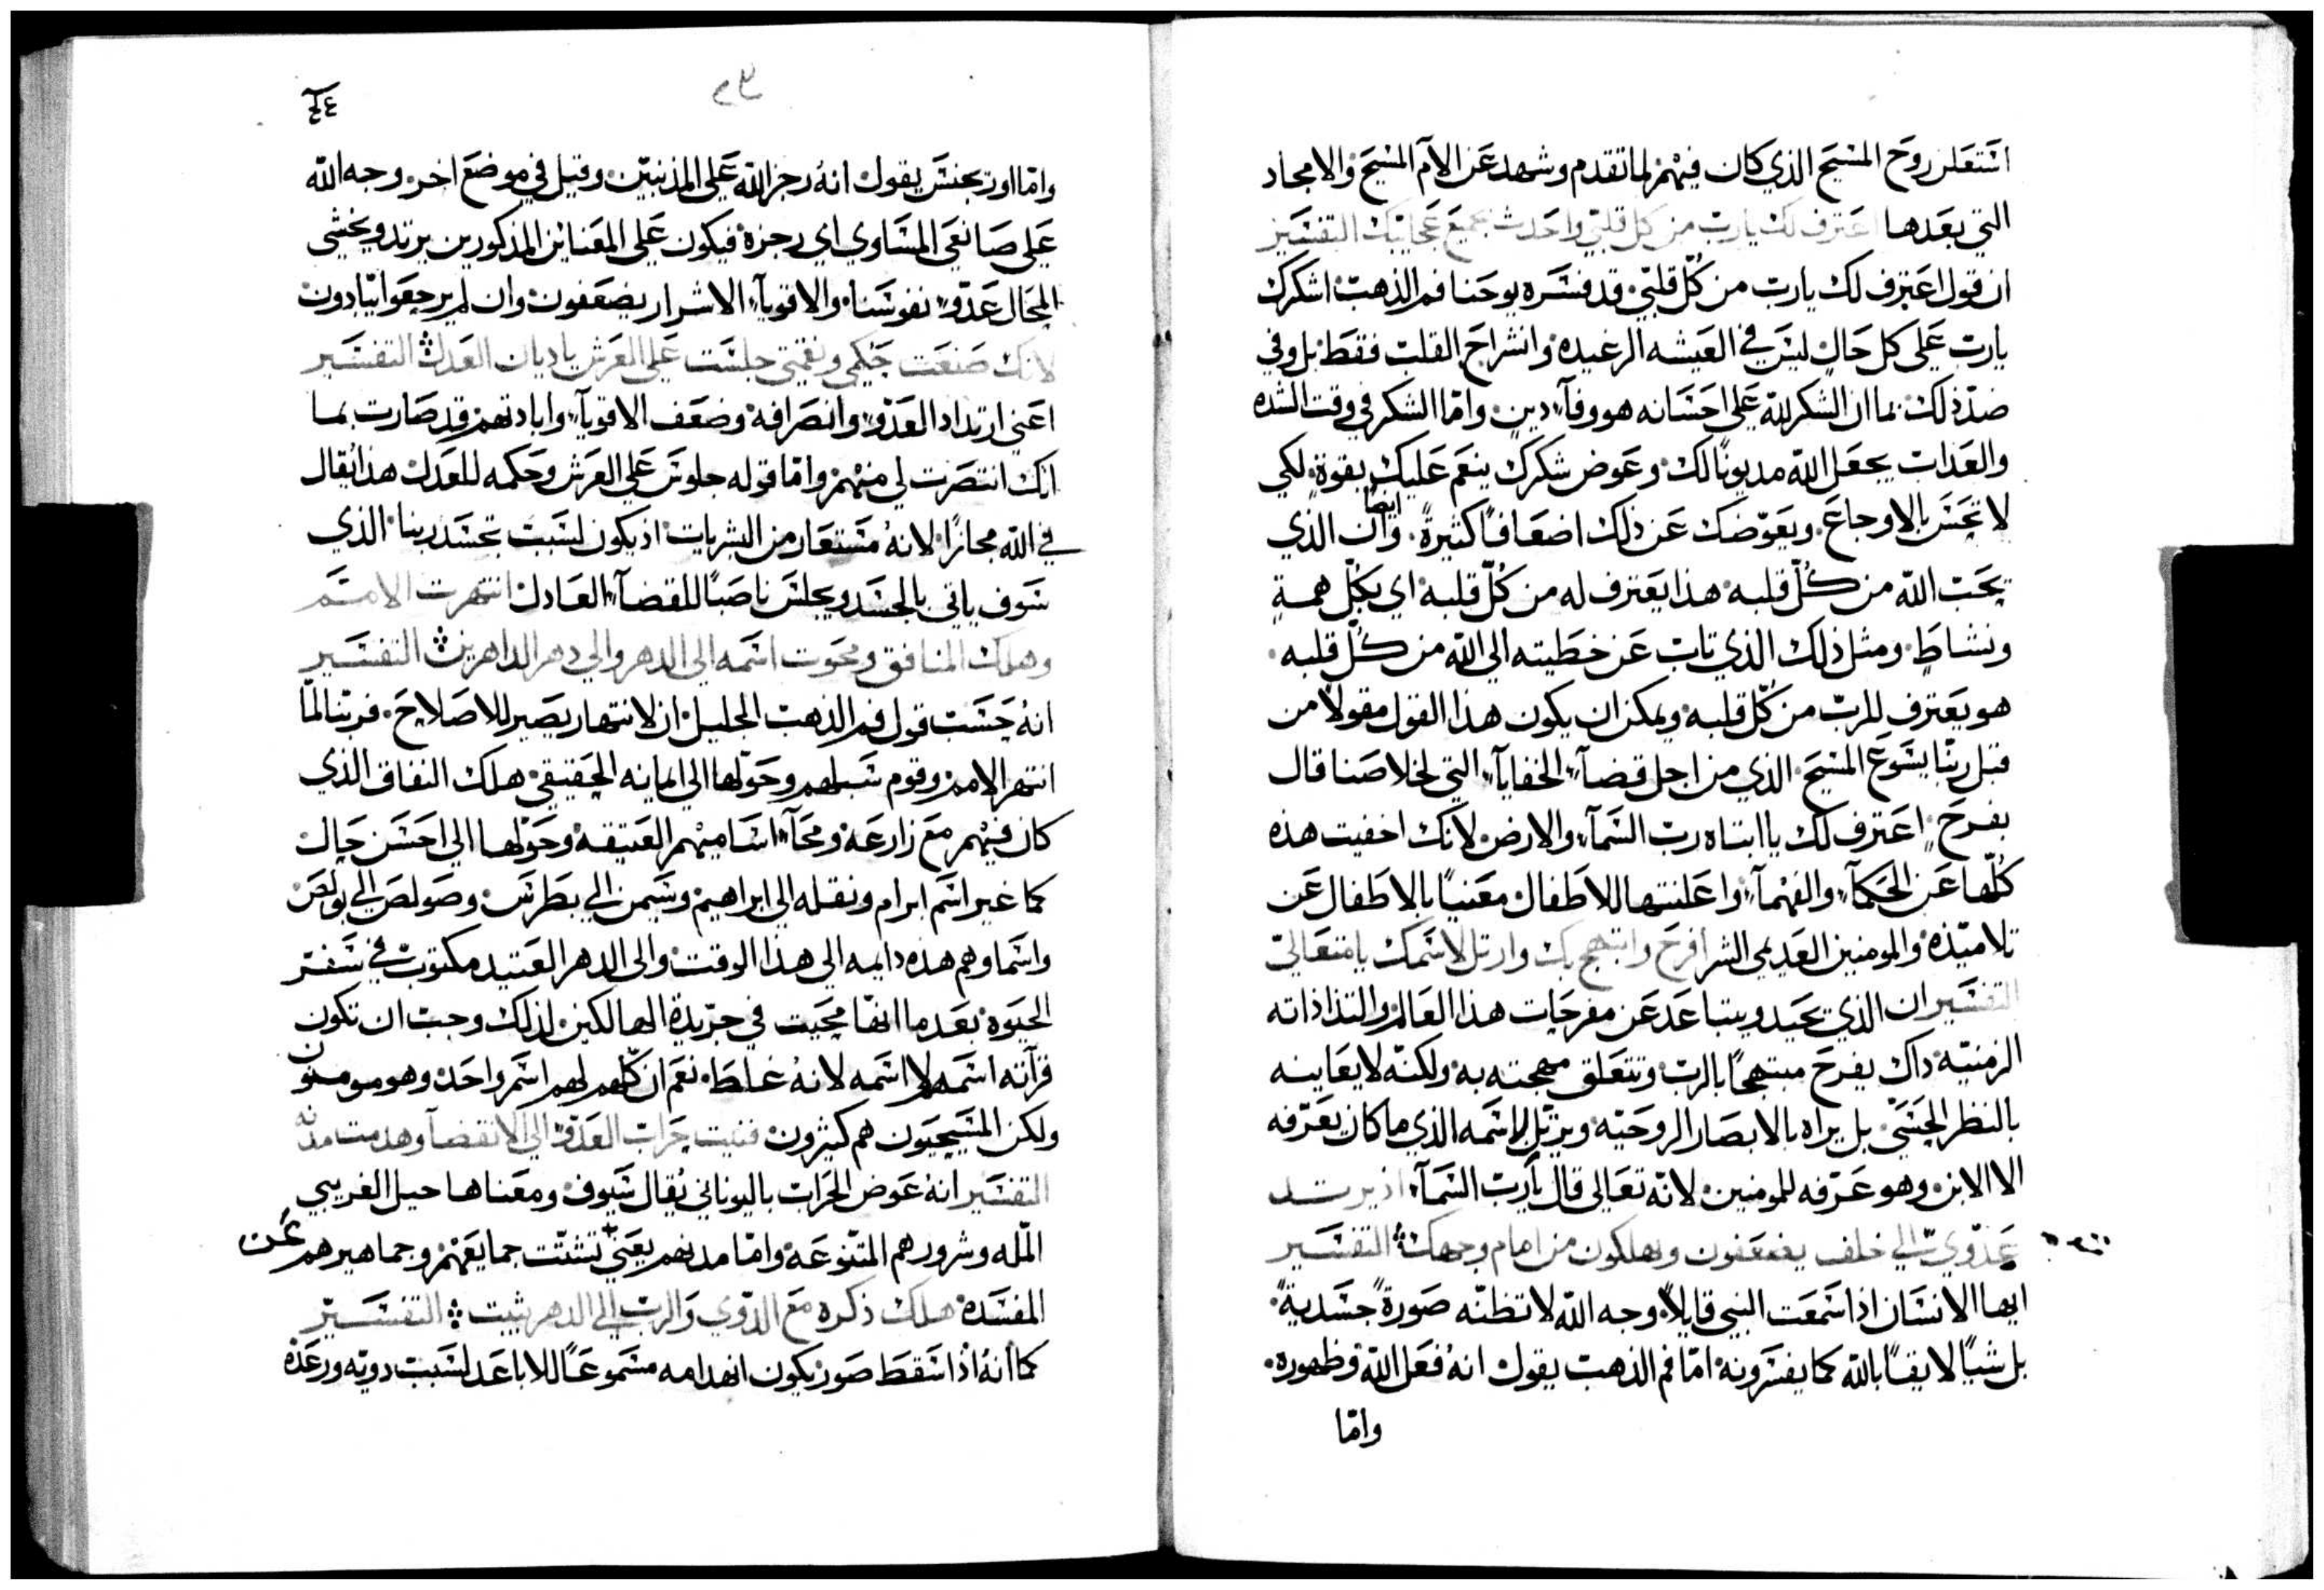 استعلن روح المسيح الذي كان فيهم لما تقدم وشهد عن الآم المسيح والامجاد
التي بعدها اعترف لك يارب من كل قلبي واحدث بجميع عجايبك التفسير
ان قول اعترف لك يارب من كلّ قلبي قد فسره يوحنا فم الذهب اشكرك
يارب على كل حال ليس في العيشه الرغيده وانشراح القلب فقط بل وفي
ضدّ ذلك بما ان الشكر لله على احسانه هو وفآء دين وامّا الشكر في وقت الشده
والعذاب يجعل الله مديونًا لك وعوض شكرك ينعم عليك بقوة لكي
لا تحس بالاوجاع ويعوّضك عن ذلك اضعافًا كثيرةً وايضًا ان الذي
يحب الله من كلّ قلبه هذا يعترف له من كلّ قلبه اي بكلّ همة
ونشاط ومثل ذلك الذي تاب عن خطيته الي الله من كلّ قلبه
هو يعترف للرب من كلّ قلبه ويمكن ان يكون هذا القول مقولاً من
قبل ربّنا يسوع المسيح الذي من اجل قضآء الخفايآء التي لخلاصنا قال
بفرحٍ اعترف لك يا ابتاه رب السمآء والارض لانك اخفيت هذه
كلّها عن الحكمآء والفهمآء واعلنتها للاطفال معنيًا بالاطفال عن
تلاميذه والمومنين العديمي الشر افرح وابتهج بك وارتل لاسمك يا متعالي
التفسير ان الذي يحيد ويتباعد عن مفرحات هذا العالم والتذاذاته
الزمنيّة ذاك يفرح مبتهجًا بالرب وتتعلق مهجته به ولكنّه لا يعاينه
بالنظر الحسّي بل يراه بالابصار الروحيّه ويرتّل لاسمه الذي ما كان يعرّفه
الا الابن وهو عرّفه للمومنين لانّه تعالى قال يارب السمآء اذ يرتد
عدوّي الي خلف يضعفون ويهلكون من امام وجهك التفسير
ايها الانسان اذا سمعت النبي قايلاً وجه الله لا تظنّه صورةً جسديةً
بل شيًا لايقًا بالله كما يفسرونه امّا فم الذهب يقول انه فعل الله وظهوره
وامّا
وامّا اوريجنس يقول انه رجز الله علي المذنبين وقيل في موضع اخر وجه الله
علي صانعي المساوي اي رجزه فيكون علي المعنائين المذكورين يرتد ويخشي
المحال عدوّ نفوسنا والاقويآء الاشرار يضعفون وان لم يرجعوا يبادون
لانك صنعت حكمي ونقمتي جلست علي العرش ياديان العدل التفسير
اعني ارتداد العدوّ وانصرافه وضعف الاقويآء وابادتهم قد صارت بما
انك انتصرت لي منهم وامّا قوله جلوس علي العرش وحكمه للعدل هذا يُقال
في الله مجازًا لانه مستعار من البشريات اذ يكون لسبب تجسد ربنا الذي
سوف ياتي بالجسد ويجلس ناصبًا للقضآء العادل انتهرت الامم
وهلك المنافق ومحوت اسمه الي الدهر والي دهر الداهرين التفسير
انه حسب قول فم الذهب الجليل ان الانتهار يصير للاصلاح فربّنا لمّا
انتهر الامم وقوم سبلهم وحوّلها الي ايمانه الحقيقي هلك النفاق الذي
كان فيهم مع زارعه ومحآء اساميهم العتيقة وحوّلها الي احسن حال
كما غير اسم ابرام ونقله الي ابراهيم وسيمن الي بطرس وصولص الي بولص
واسماوهم هذه دايمه الي هذا الوقت والي الدهر العتيد مكتوب في سفر
الحيوة بعدما انها محيت في جريدة الهالكين لذلك وجب ان تكون
قرآته اسمهم لا اسمه لانه غلط نعم ان كلّهم لهم اسم واحد وهو مومنون
ولكن المسيحيون هم كثيرون فنيت حراب العدوّ الي الانقضآ وهدمت مدنه
التفسير انه عوض الحراب باليوناني يُقال سيوف ومعناها حيل الغريبي
الملّه وشرورهم المتنوعة وامّا مدنهم يعني تشتّت جمايعهم وجماهيرهم عن
المفسدة هلك ذكره مع الدّوي والرب الي الدهر يثبت التفسير
كما انه اذا سقط صور يكون انهدامه مسموعًا للاباعد لسبب دويّه ورعده